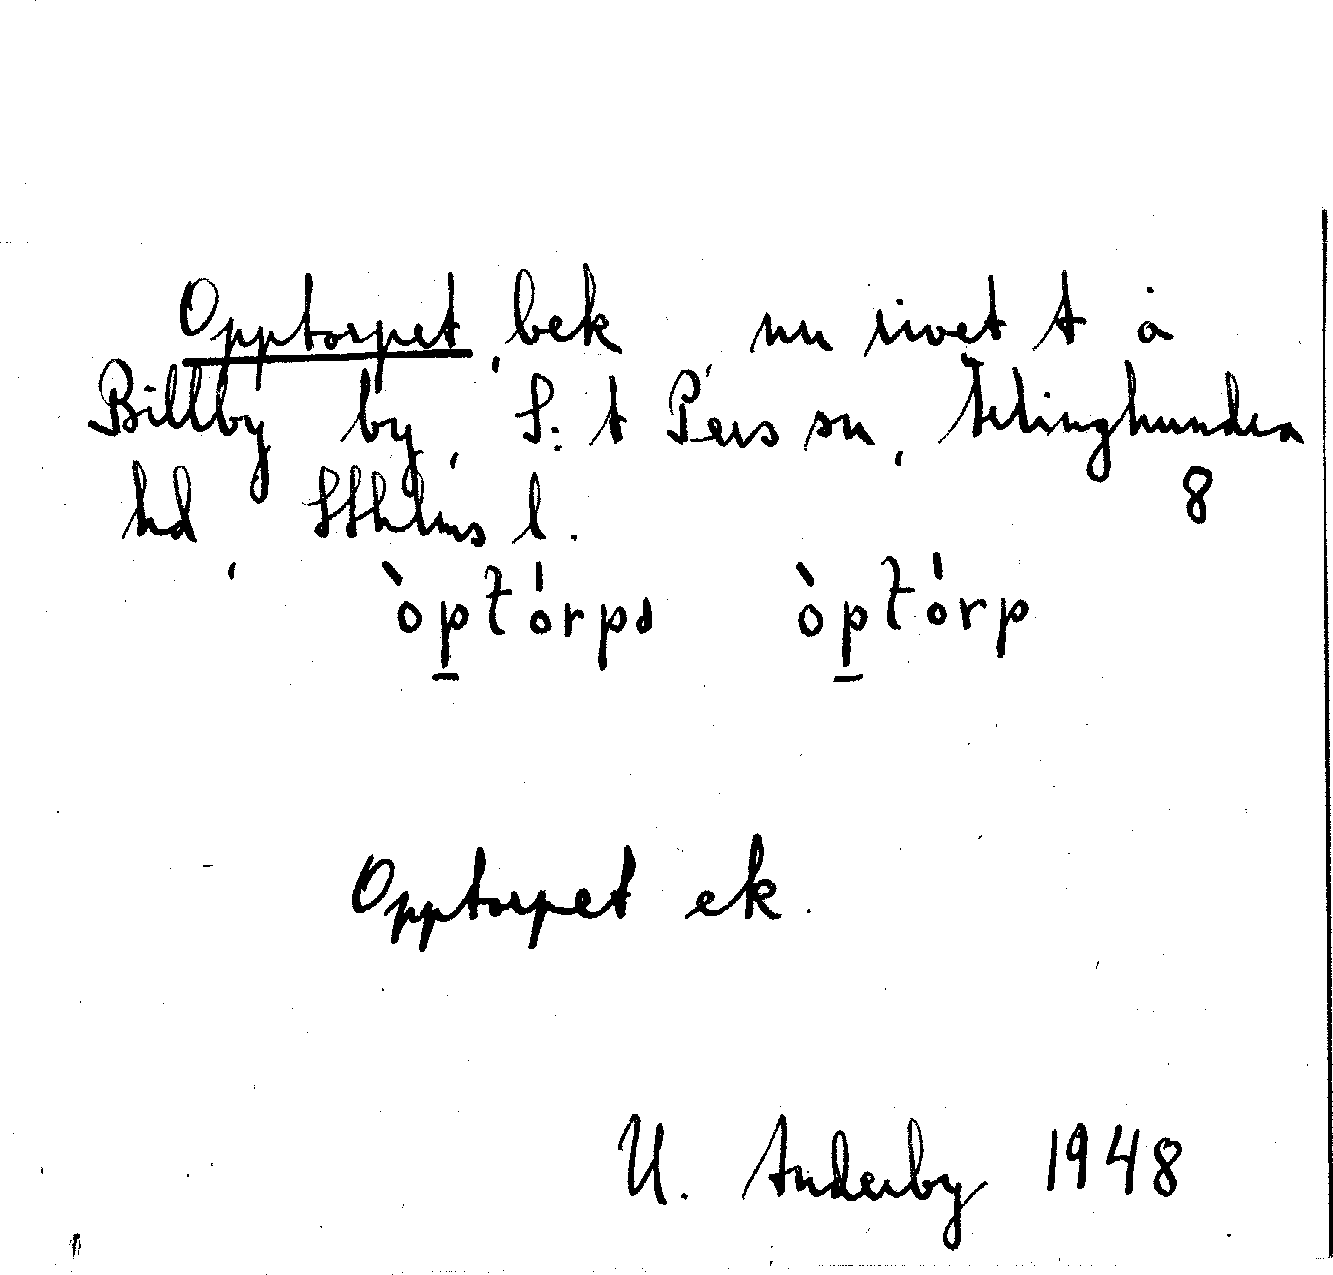 Opptorpet, bek nu rivet t å
Billby by, S:t Pers sn, Seminghundra
hd, Sthlms l. 8
òptórpə òptórp
Opptorpet ek.
U. Anderby 1948